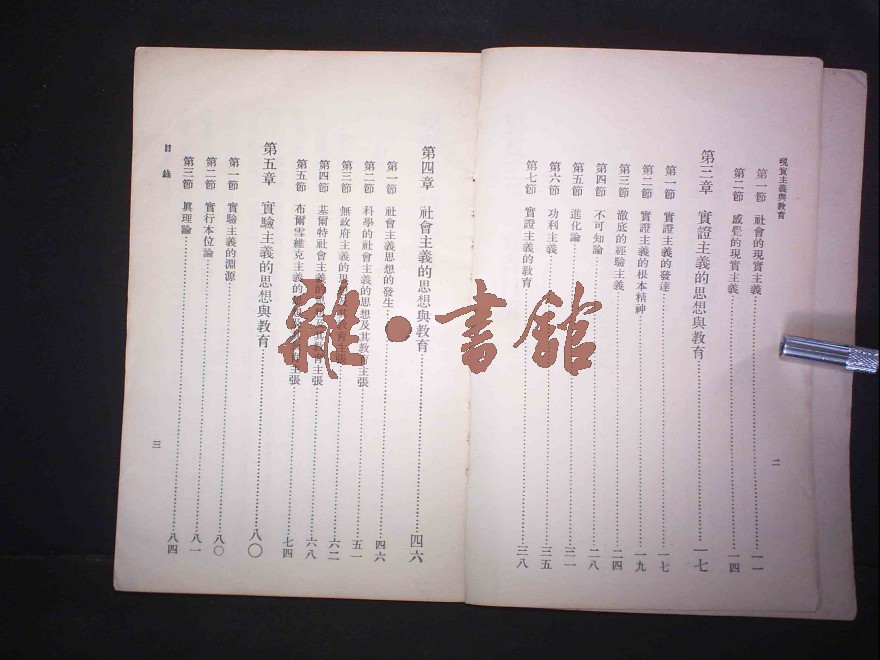 現實主義與教育
第一節 社會的現實主義 一一
第二節 感覺的現實主義 一四
第三章 實證主義的思想與教育 一七
第一節 實證主義的發達 一七
第二節 實證主義的根本精神 一九
第三節 澈底的經驗主義 二四
第四節 不可知論 二八
第五節 進化論 三一
第六節 功利主義 三五
第七節 實證主義的教育 三八
二
第四章 社會主義的思想與教育 四六
第一節 社會主義思想的發生 四六
第二節 科學的社會主義的思想及其教育主張 五一
第三節 無政府主義的思想及其教育主張 六二
第四節 基爾特社會主義的思想及其教育主張 六八
第五節 布爾雪維克主義的思想及其教育主張 七四
第五章 實驗主義的思想與教育 八〇
第一節 實驗主義的淵源 八〇
第二節 實行本位論 八一
第三節 眞理論 八四
目錄
三
雜·書館